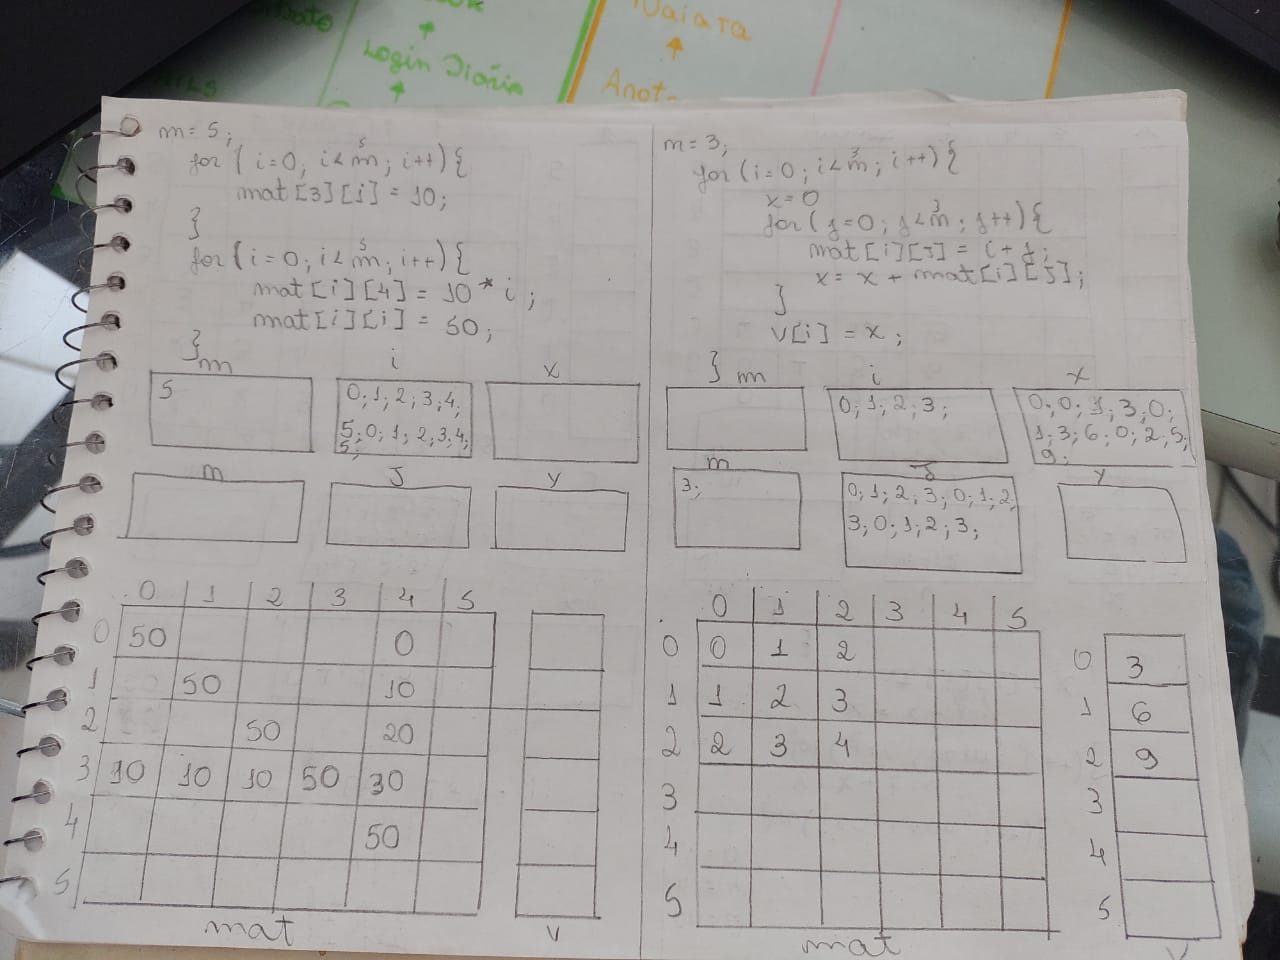 Login Diário
Naiara
m=5;
for (i=0; i<m; i++){
5
mat[3][i]=10;
}
for (i=0; i<m; i++){
5
mat[i][4]=10*i;
mat[i][i]=50;
}
m i x
5
0;1;2;3;4;
5;0;1;2;3;4;
5;
m J y
0 1 2 3 4 5
0 50 0
1 50 10
2 50 20
3 10 10 10 50 30
4 50
5
mat
v
m=3;
for (i=0; i<m; i++){
3
x=0
for (j=0; j<m; j++){
3
mat[i][j]=i+j;
x=x+mat[i][j];
}
v[i]=x;
}
m i x
0;1;2;3;
0;0;1;3;0;
1;3;6;0;2;5;
9;
m J y
3;
0;1;2;3;0;1;2;
3;0;1;2;3;
0 1 2 3 4 5
0 0 1 2
1 1 2 3
2 2 3 4
3
4
5
mat
0 3
1 6
2 9
3
4
5
v